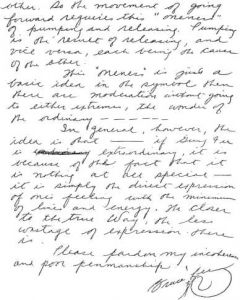 other. So the movement of going
forward requires this "oneness"
of pumping and releasing. Pumping
is the result of releasing, and
vice versa, each being the cause
of the other.
This "oneness" is just a
basic idea in the symbol then
there are moderation without going
to either extremes, the wonder of
the ordinary - - - - - -
In general, however, the
idea is that if Gung Fu
is extraordinary, it is
because of the fact that it
is nothing at all special —
it is simply the direct expression
of one's feeling with the minimum
of lines and energy. The closer
to the true Way, the less
wastage of expression there
is.
Please pardon my incoherence
and poor penmanship
Bruce Lee